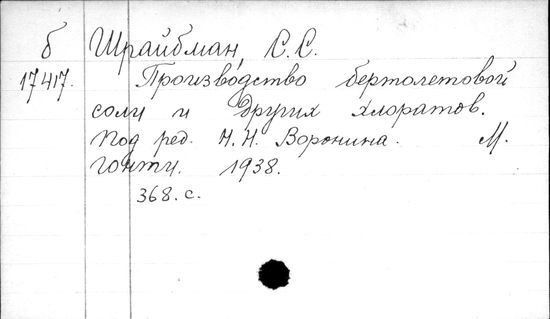 б Шрайбман, С. С.
17417. Производство бертолетовой
соли и других хлоратов.
Под ред. Н. Н. Воронина. М.
ГОНТИ. 1938.
368. с.